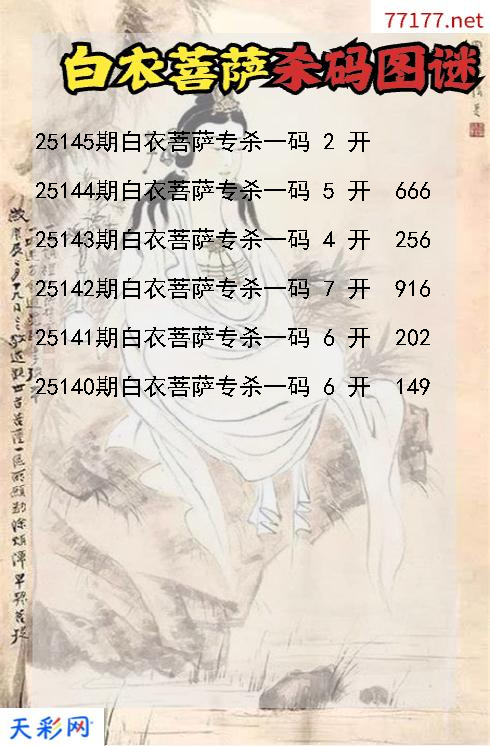 77177.net
白衣菩萨杀码图谜
25145期白衣菩萨专杀一码 2 开
25144期白衣菩萨专杀一码 5 开 666
25143期白衣菩萨专杀一码 4 开 256
25142期白衣菩萨专杀一码 7 开 916
25141期白衣菩萨专杀一码 6 开 202
25140期白衣菩萨专杀一码 6 开 149
天彩网